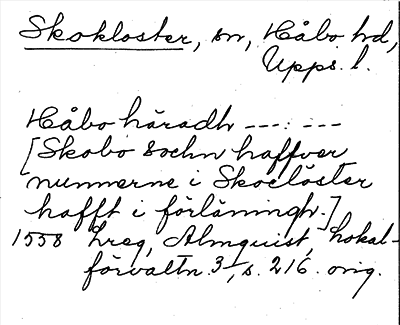 Skokloster, sn, Håbo hd,
Upps. l.
Håbo häradh ---: ---
[Skobo sochn haffver
nunnerne i Skoclöster
hafft i förläningh.]
1558 hreg, Almquist, Lokal-
förvaltn. 3, s. 216. orig.